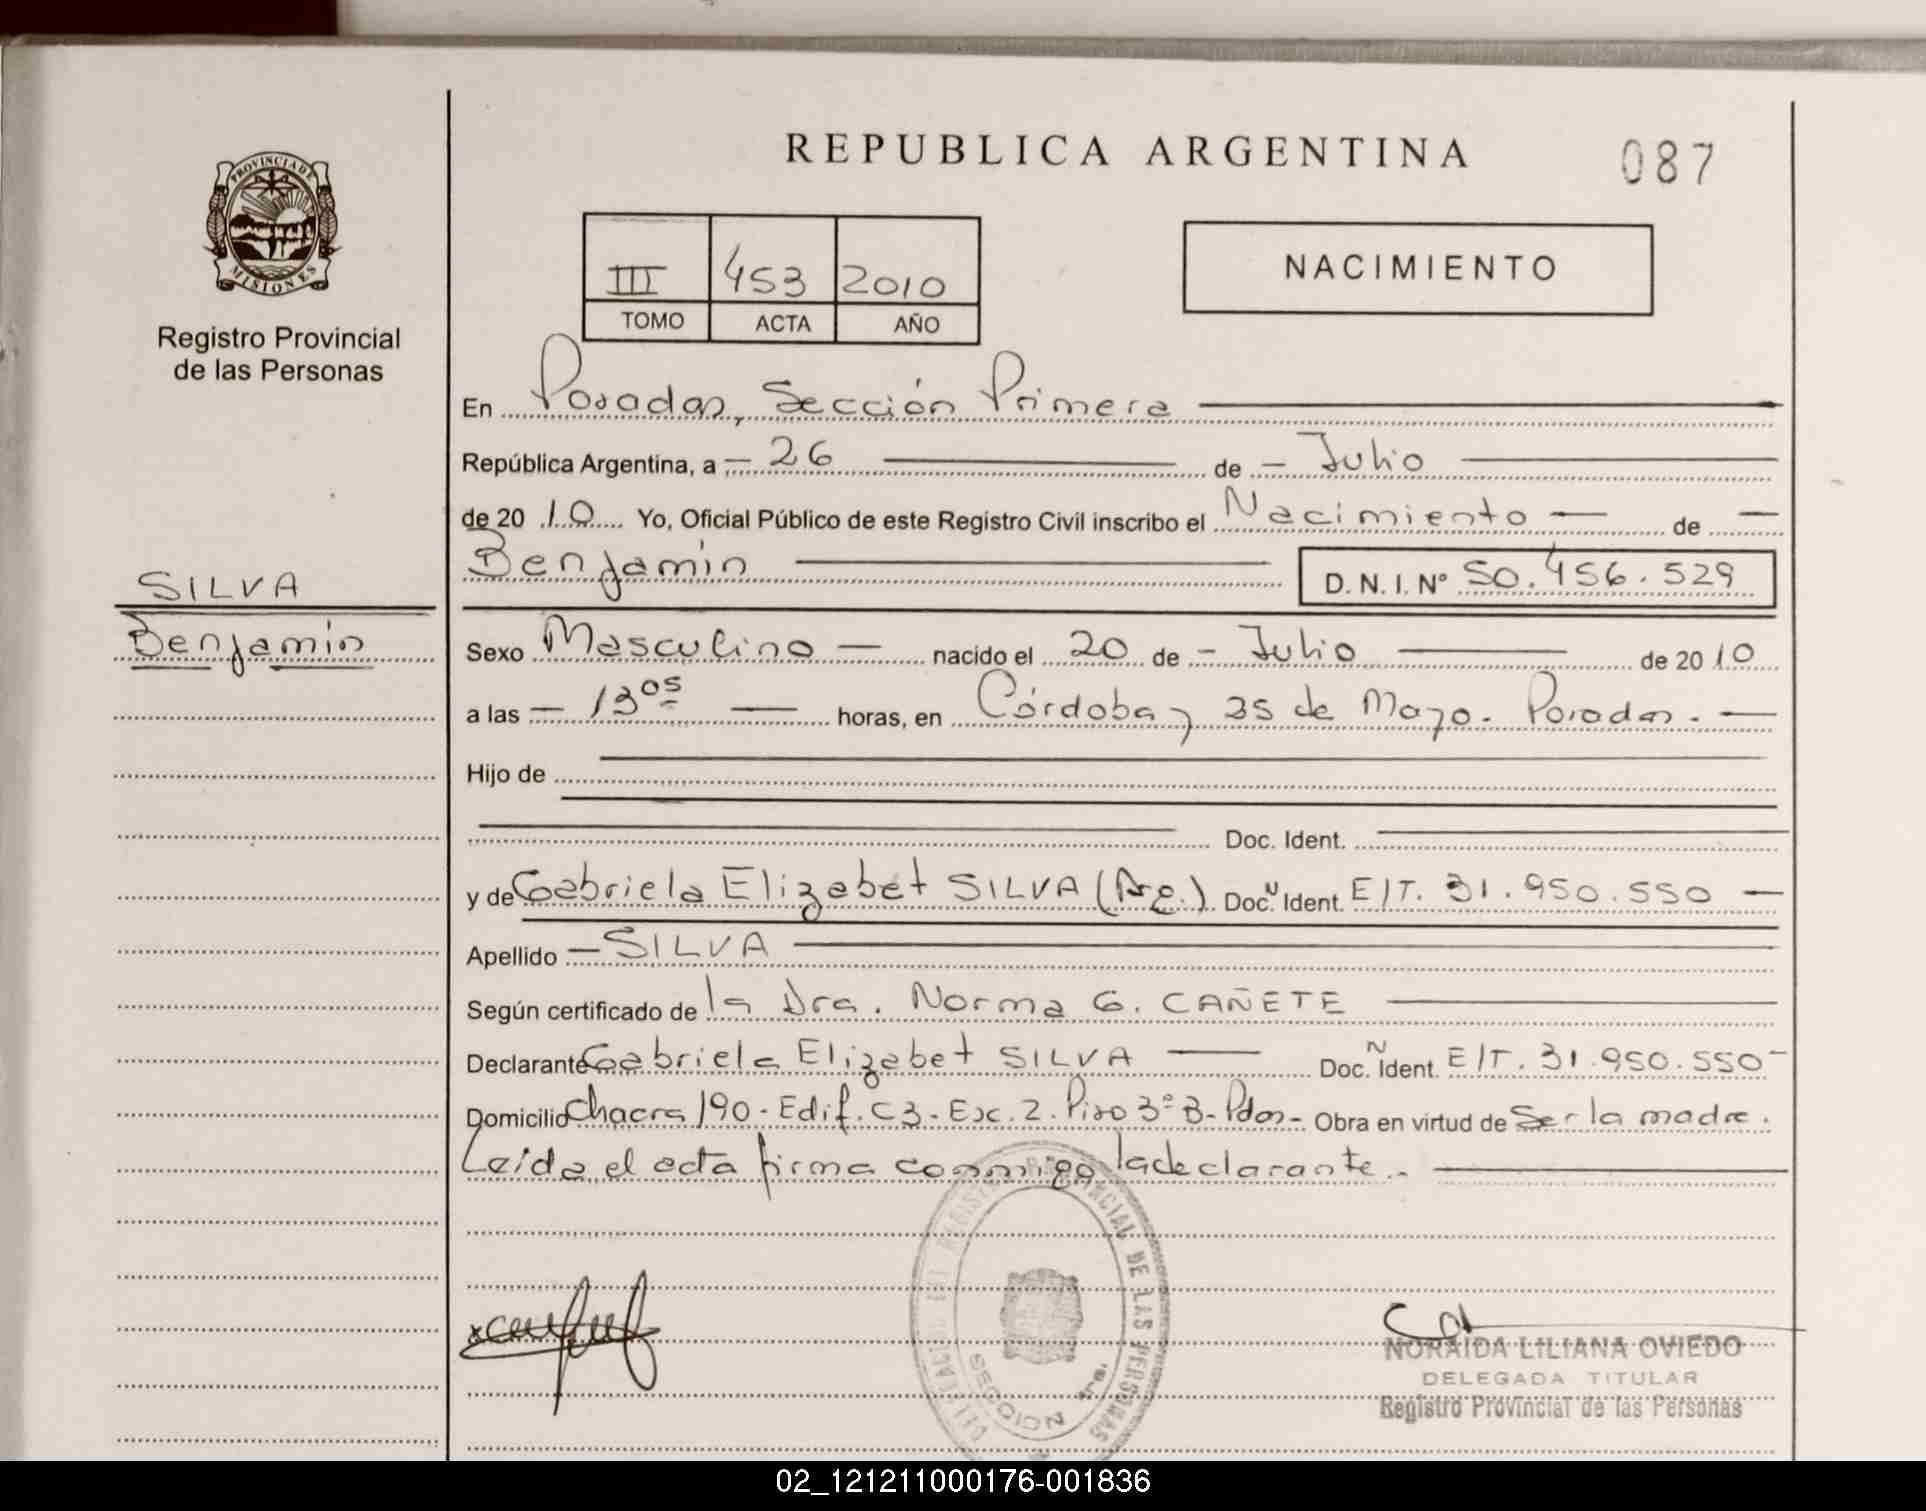 REPUBLICA ARGENTINA
087
PROVINCIA DE
MISIONES
Registro Provincial
de las Personas
III 453 2010
TOMO ACTA AÑO
NACIMIENTO
En Posadas, Sección Primera
República Argentina, a 26 de Julio
de 20 10 Yo, Oficial Público de este Registro Civil inscribo el Nacimiento de
Benjamín D. N. I. Nº 50.456.529
SILVA
Benjamín
Sexo Masculino nacido el 20 de Julio de 20 10
a las 13 05 horas, en Córdoba y 25 de Mayo. Posadas.
Hijo de
Doc. Ident.
y de Gabriela Elizabet SILVA (Arg.) Doc. N Ident. E/T. 31.950.550
Apellido SILVA
Según certificado de la Dra. Norma G. CAÑETE
Declarante Gabriela Elizabet SILVA Doc. N Ident. E/T. 31.950.550
Domicilio Chacra 190 - Edif. C3 - Esc. 2. Piso 3º B - Pdas - Obra en virtud de Ser la madre.
Leída el acta firma conmigo la declarante.
DELEGACION DEL REGISTRO PROVINCIAL DE LAS PERSONAS
SECCION 1ra.
NORAIDA LILIANA OVIEDO
DELEGADA TITULAR
Registro Provincial de las Personas
02_121211000176-001836